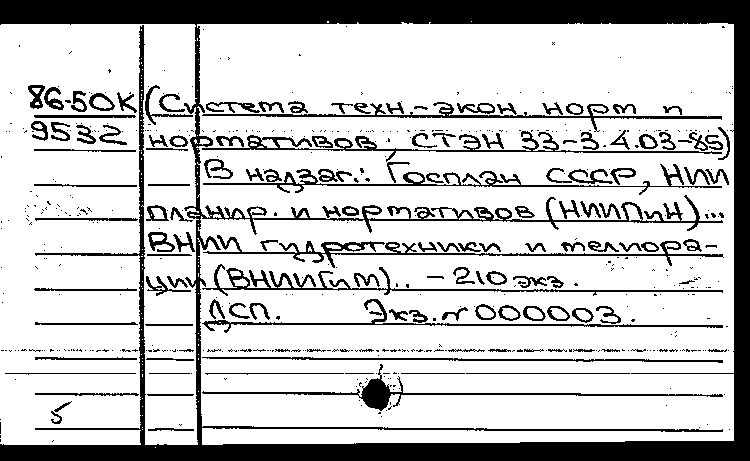 86-50К (Система техн.-экон. норм и
9532 нормативов. СТЭН 33-3.4.03-85)
В надзаг.: Госплан СССР, НИИ
планир. и нормативов (НИИПиН)...
ВНИИ гидротехники и мелиора-
ции (ВНИИГиМ).. - 210 экз.
ДСП. Экз. № 000003.
5